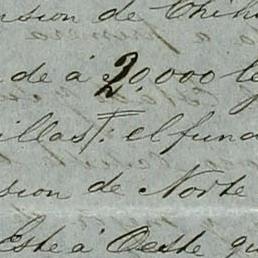 sion de Chih
de á 20.000 le
illas: el fund
sion de Norte
Este á Oeste qu